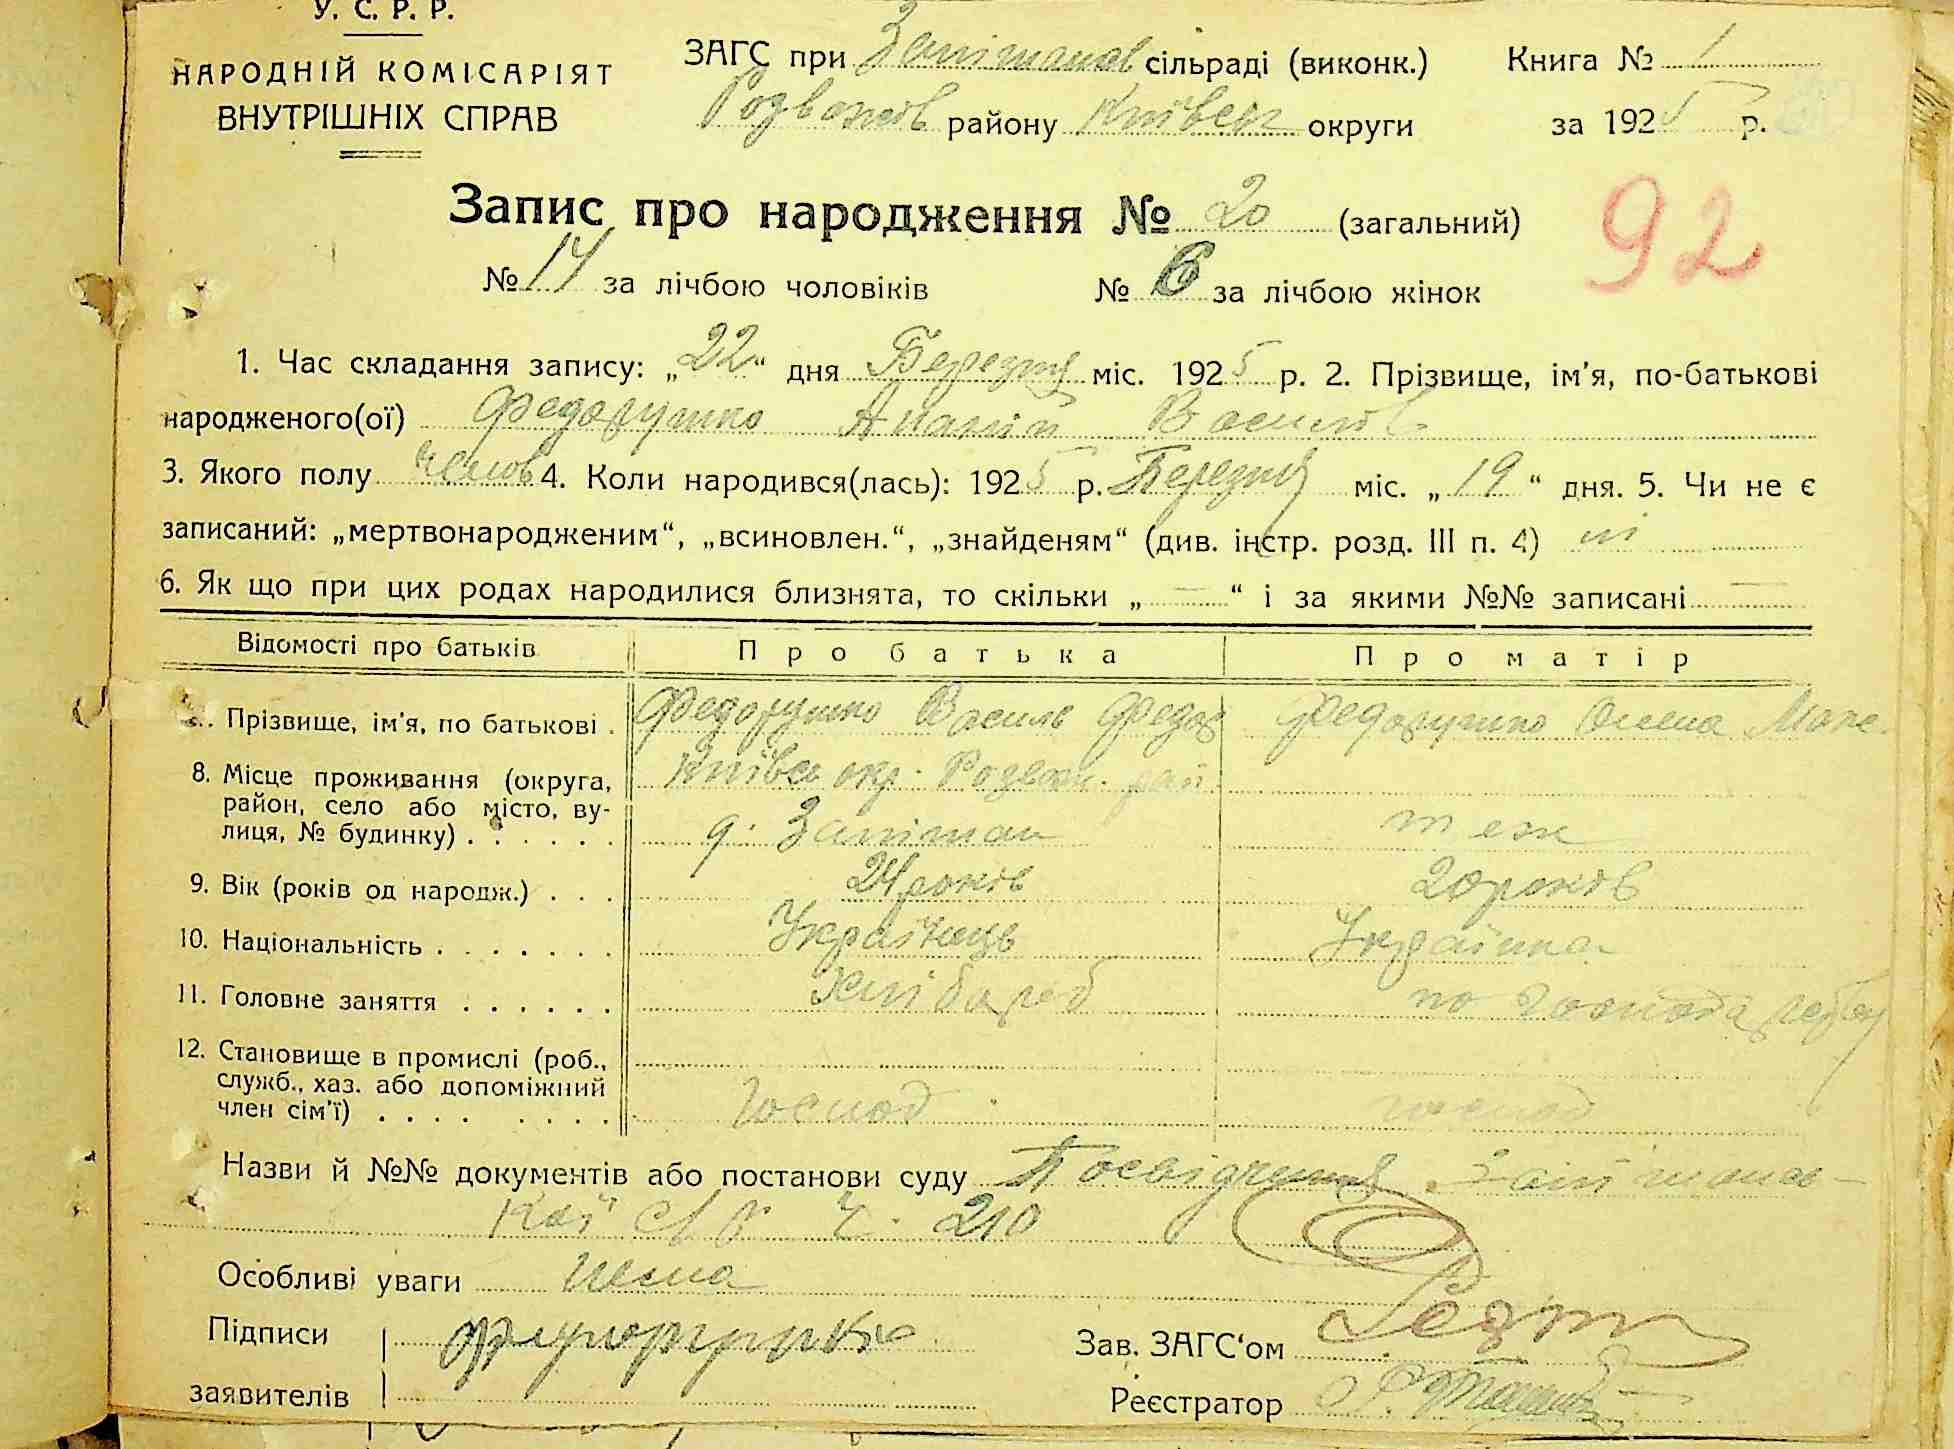 У. С. Р. Р.
НАРОДНІЙ КОМІСАРІЯТ
ВНУТРІШНІХ СПРАВ
ЗАГС при сільраді (виконк.)
Розважів району Київськ округи
Книга № 1
за 1925 р.
Запис про народження № 20 (загальний)
92
№ 14 за лічбою чоловіків № 6 за лічбою жінок
1. Час складання запису: „22“ дня Березня міс. 1925 р. 2. Прізвище, ім'я, по-батькові
народженого(ої) Федорушко Ананій Васильов
3. Якого полу 4. Коли народився(лась): 1925 р. Березня міс. „19“ дня. 5. Чи не є
записаний: „мертвонародженим“, „всиновлен.“, „знайденям“ (див. інстр. розд. III п. 4) ні
6. Як що при цих родах народилися близнята, то скільки „—“ і за якими №№ записані —
Відомості про батьків Про батька Про матір
Прізвище, ім'я, по батькові . Федорушко Василь Федор Федорушко Олена Макс.
8. Місце проживання (округа, район, село або місто, вулиця, № будинку) . . . . . . Київськ окр. Розваж. рай.
теж
9. Вік (років од народж.) . . . 24 років 20 років
10. Національність . . . . . . . Українець Українка
11. Головне заняття . . . . . . Хлібороб по
12. Становище в промислі (роб., служб., хаз. або допоміжний член сім'ї) . . . . . . . . Господ господ
Назви й №№ документів або постанови суду Посвідчення
ч. 210
Особливі уваги Нема
Підписи
заявителів
Зав. ЗАГС'ом
Реєстратор